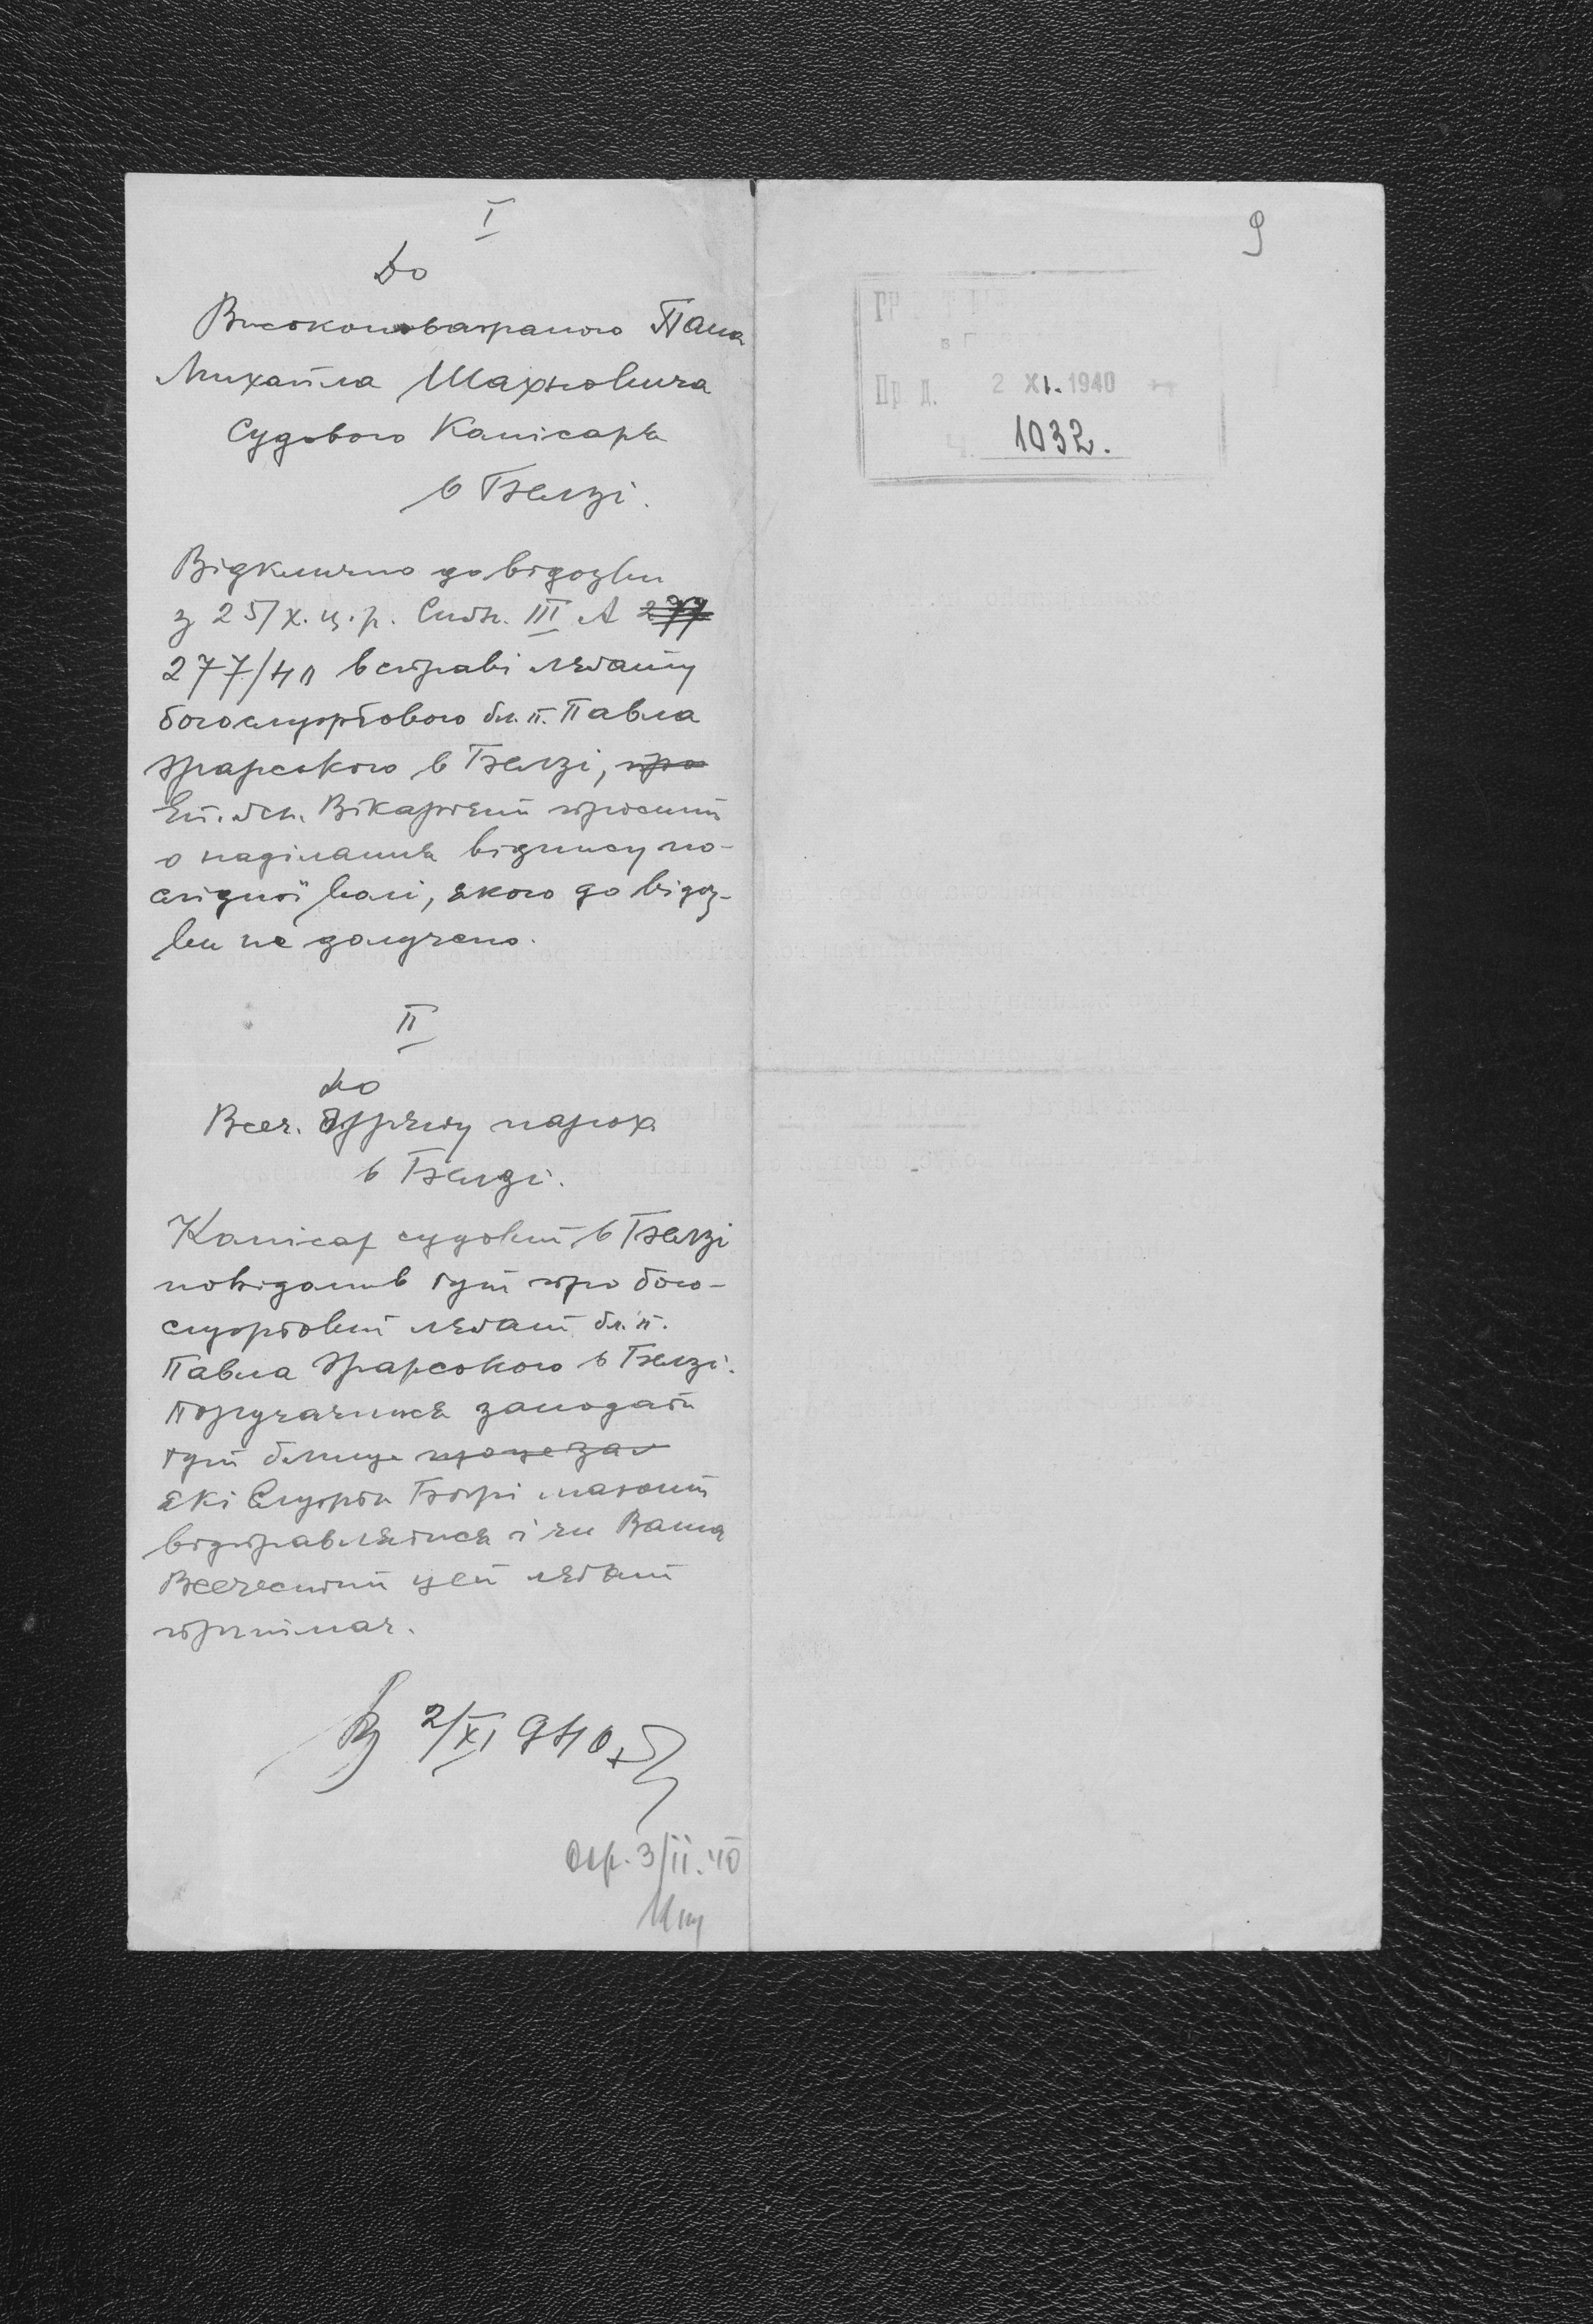 I
До
Високоповажаного Пана
Михайла Шахновича
Судового Комісаря
в Белзі.
Відклично до відозви
з 25/X. ц.р. Сигн. III А 277
277/40 в справі лєґату
богослужбового бл. п. Павла
в Белзі, про
Еп. осн. Вікаріят просить
о наділання відпису по-
слідної волі, якого до відоз-
ви не долучено.
II
До
Всеч. Уряду пароха
в Белзі.
Комісар судовий в Белзі
повідомив тут про бого-
службовий лєґат бл. п.
Павла в Белзі.
Поручаємося заподати
тут близше
які Служби Божі мають
відправлятися і чи Ваша
Всечесність цей лєґат
приймає.
2/XI 940
3/II.40
9
ГР
в П
Пр. д. 2 XI. 1940
Ч. 1032.